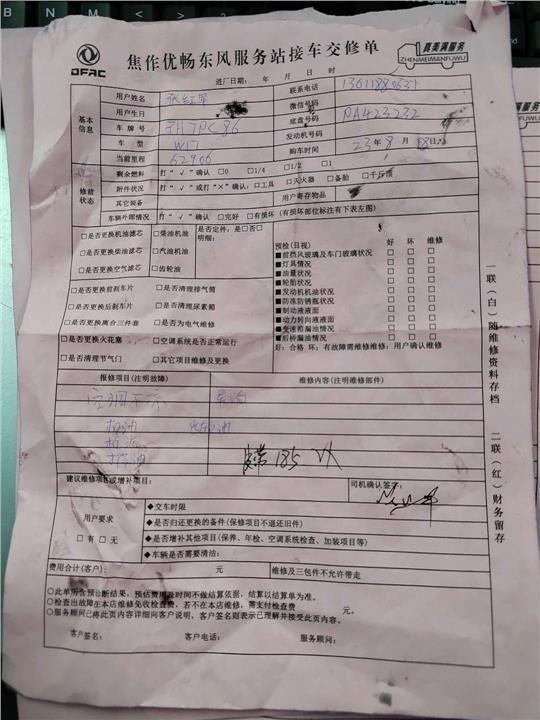 DFAC
焦作优畅东风服务站接车交修单
真美满服务
ZHENMEIMANFUWU
进厂日期: 年 月 日 时
基本信息
用户姓名 张红军 联系电话
用户生日 微信号码
车牌号 底盘号码 PA423232
车型 W17 发动机号码
当前里程 62906 购车时间 23年8月18日
修前状态
剩余燃料 打“√”确认 □0 □1/4 □1/2 □1
附件状况 打“√”或打“×”确认:□工具 □灭火器 □备胎 □千斤顶
其它装备 用户寄存物品
车辆外部情况 打“√”确认 □完好 □有损坏(有损坏部位标注有下表左图)
□是否更换机油滤芯 □柴油机油 是否定件:是□否□
□是否更换柴油滤芯 □汽油机油 明细:
□是否更换空气滤芯 □齿轮油
□是否更换前刹车片 □是否清理排气筒
□是否更换后刹车片 □是否清理尿素箱
□是否更换离合三件套 □是否为电气维修
□是否更换火花塞 □空调系统是否正常运行
□是否清理节气门 □其它项目维修及更换
预检(目视) 好 坏 维修
■前挡风玻璃及车门玻璃状况 □ □ □
■灯具情况 □ □ □
■油量状况 □ □ □
■轮胎状况 □ □ □
■发动机机油状况 □ □ □
■防冻防锈瓶状况 □ □ □
■制动液液面 □ □ □
■动力转向液液面 □ □ □
■变速箱漏油情况 □ □ □
■后桥漏油情况 □ □ □
好:合格 坏:有故障需维修维修:用户确认维修
报修项目(注明故障) 维修内容(注明维修部件)
空调不凉
机油
185
建议维修项目或增补项目: 司机确认签字:
用户要求
□有 □无
◆交车时限
◆是否归还更换的备件(保修项目不退还旧件)
◆是否增补其他项目(保养、年检、空调系统检查、加装项目等)
◆车辆是否需要清洁:
费用合计(客户): 元 维修及三包件不允许带走
○此单所含预诊断结果,预估费用及时间不做结算依据,结算以结算单为准。
○检查出故障在本店维修免收检查费,若不在本店维修,需支付检查费 元。
○服务顾问已将此页内容详细向客户说明,客户签名则表示已理解并接受此页内容。
客户签名: 客户电话: 服务顾问:
一联(白)随维修资料存档 二联(红)财务留存